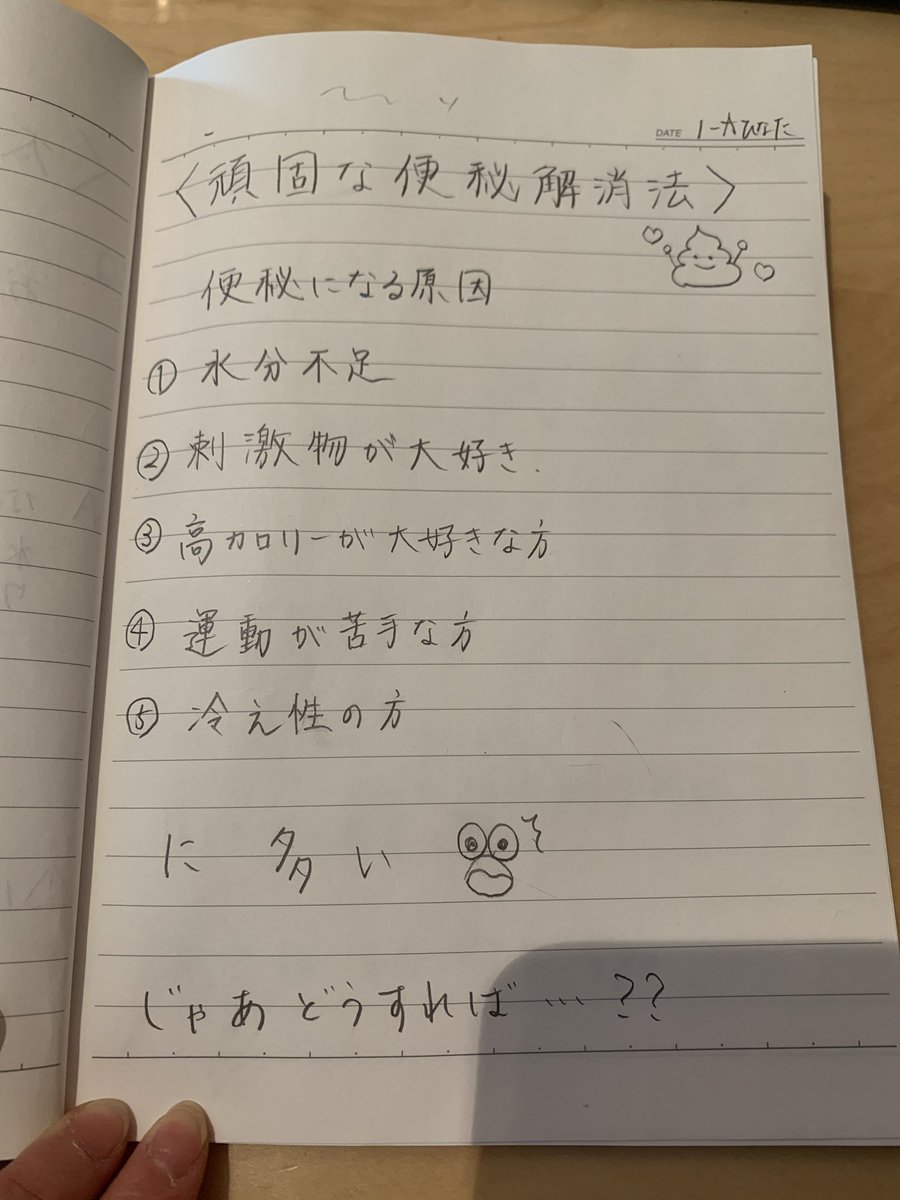 DATE
〈頑固な便秘解消法〉
便秘になる原因
① 水分不足
② 刺激物が大好き.
③ 高カロリーが大好きな方
④ 運動が苦手な方
⑤ 冷え性の方
に多い
じゃあどうすれば…??